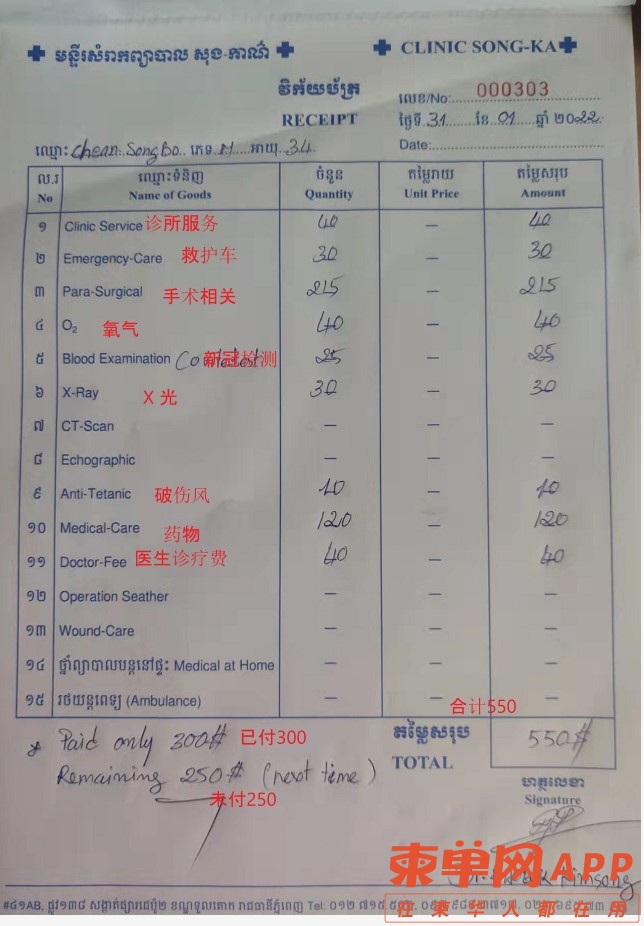 មន្ទីរសំរាកព្យាបាល សុង-កាណ៌
CLINIC SONG-KA
វិក័យប័ត្រ
RECEIPT
លេខ/No: 000303
ថ្ងៃទី 31 ខែ 01 ឆ្នាំ ២០22
Date:
ឈ្មោះ Chean Song Bo ភេទ M អាយុ 34
ល.រ ឈ្មោះទំនិញ ចំនួន តម្លៃរាយ តម្លៃសរុប
No Name of Goods Quantity Unit Price Amount
១ Clinic Service 诊所服务 40 – 40
២ Emergency-Care 救护车 30 – 30
៣ Para-Surgical 手术相关 215 – 215
៤ O₂ 氧气 40 – 40
៥ Blood Examination 新冠检测 25 – 25
៦ X-Ray X 光 30 – 30
៧ CT-Scan – – –
៨ Echographic – – –
៩ Anti-Tetanic 破伤风 10 – 10
១០ Medical-Care 药物 120 – 120
១១ Doctor-Fee 医生诊疗费 40 – 40
១២ Operation Seather – – –
១៣ Wound-Care – – –
១៤ ថ្នាំព្យាបាលបន្តនៅផ្ទះ Medical at Home – – –
១៥ រថយន្តពេទ្យ (Ambulance) – – –
合计550
Paid only 300$ 已付300
Remaining 250$ (next time)
未付250
តម្លៃសរុប
TOTAL 550$
ហត្ថលេខា
Signature
柬单网APP
在柬华人都在用
#៤១AB, ផ្លូវ១៣៨ សង្កាត់ផ្សារដេប៉ូ២ ខណ្ឌទួលគោក រាជធានីភ្នំពេញ Tel: ០១២ ៧១៥